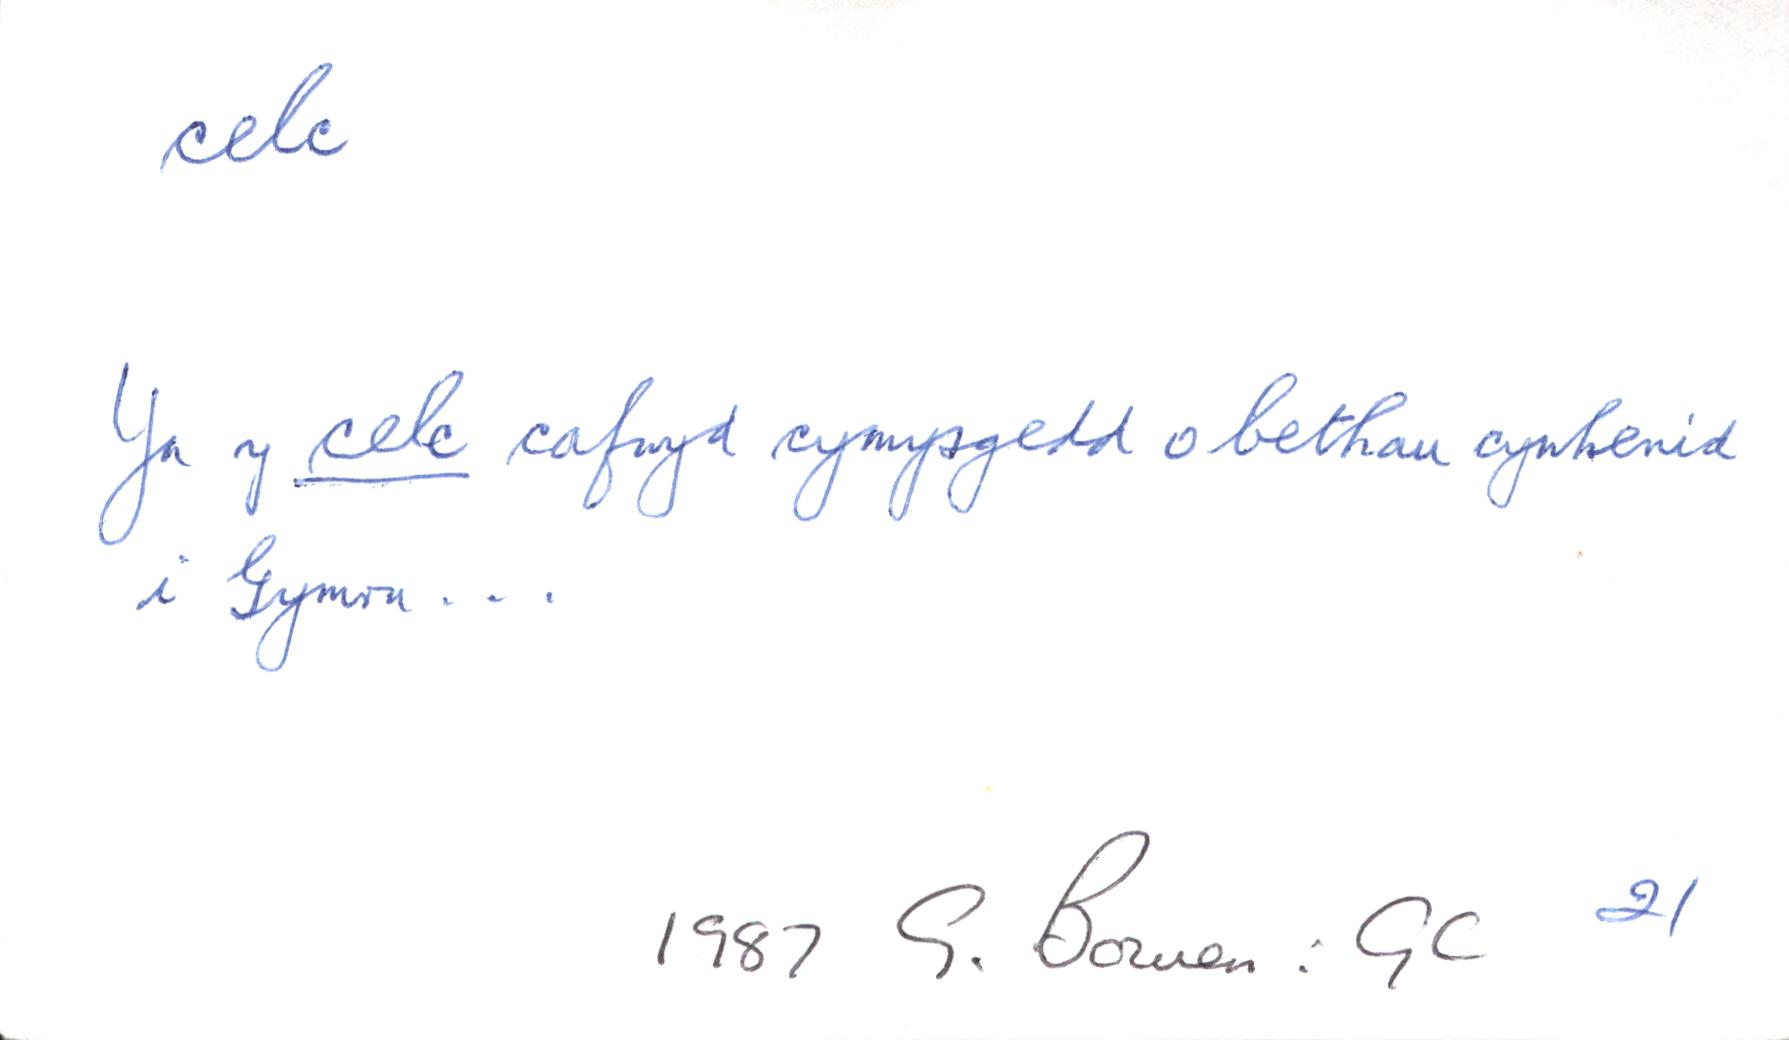 celc
Yn y celc cafwyd cymysgedd o bethau cynhenid
i Gymru . . .
1987 G. Bowen : GC 21